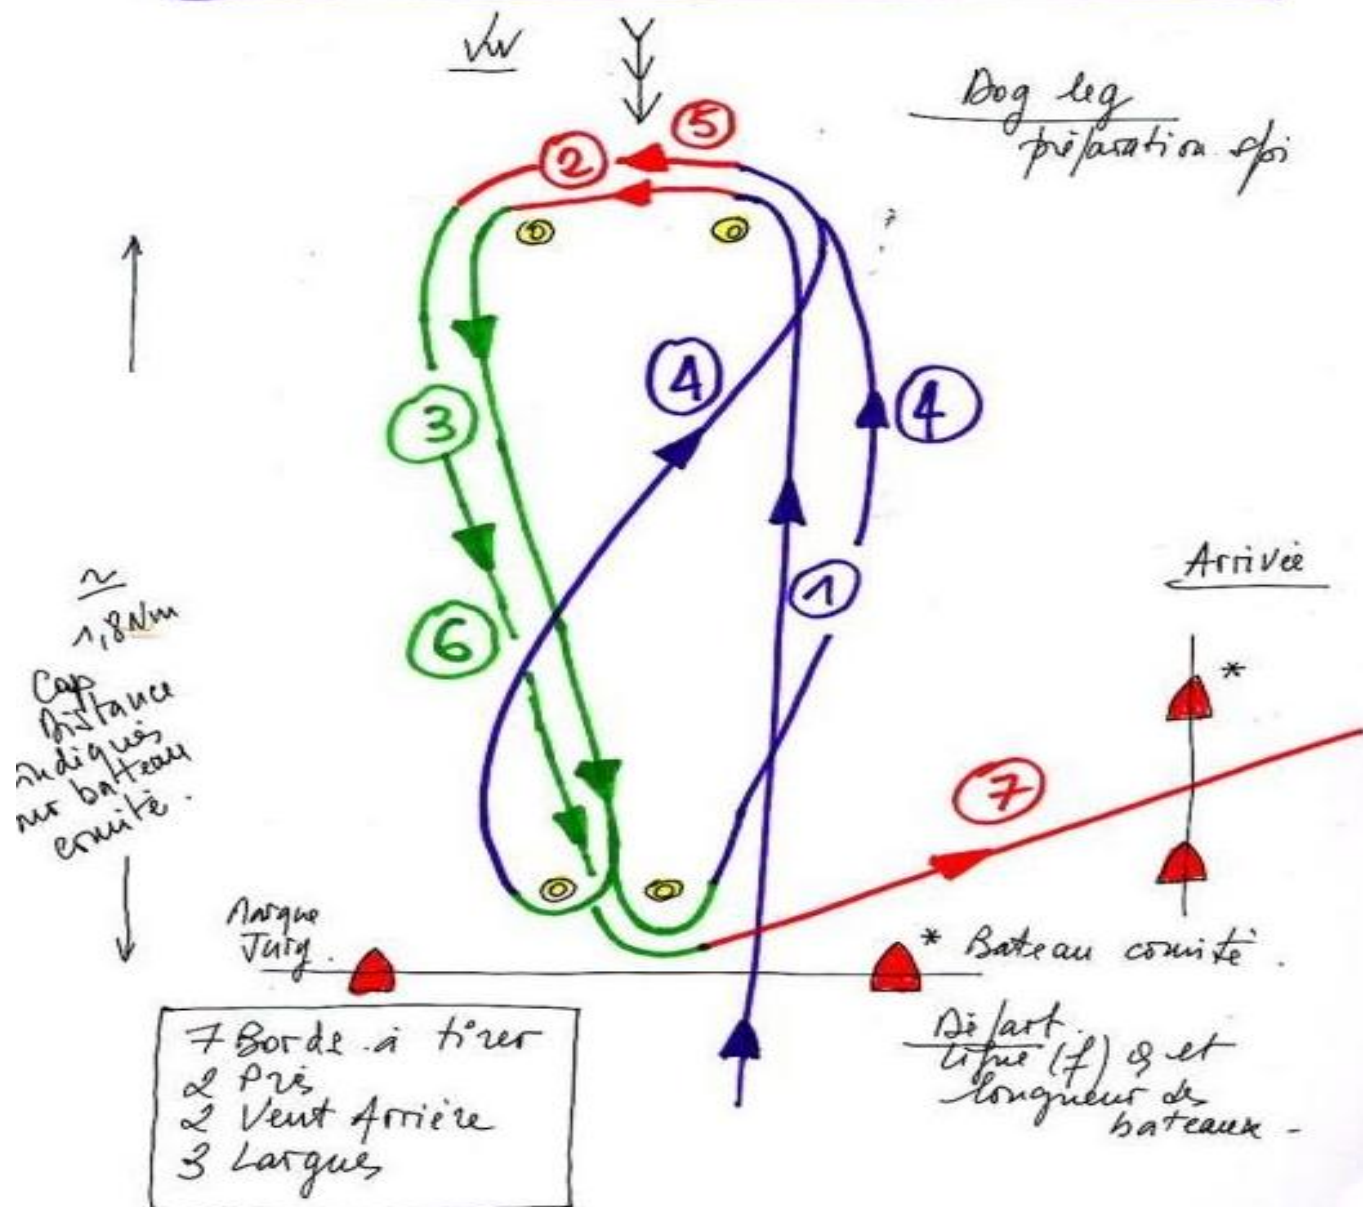 VW
Dog leg
préparation spi
5
2
4
4
3
1
6
7
Arrivée
*
~
1,8Nm
Cap
Distance
indiqués
sur bateau
comité.
Marque
Jury.
* Bateau comité.
Départ.
Ligne (f) Q et
longueur des
bateaux -
7 Bords à tirer
2 Près
2 Vent Arrière
3 Largues